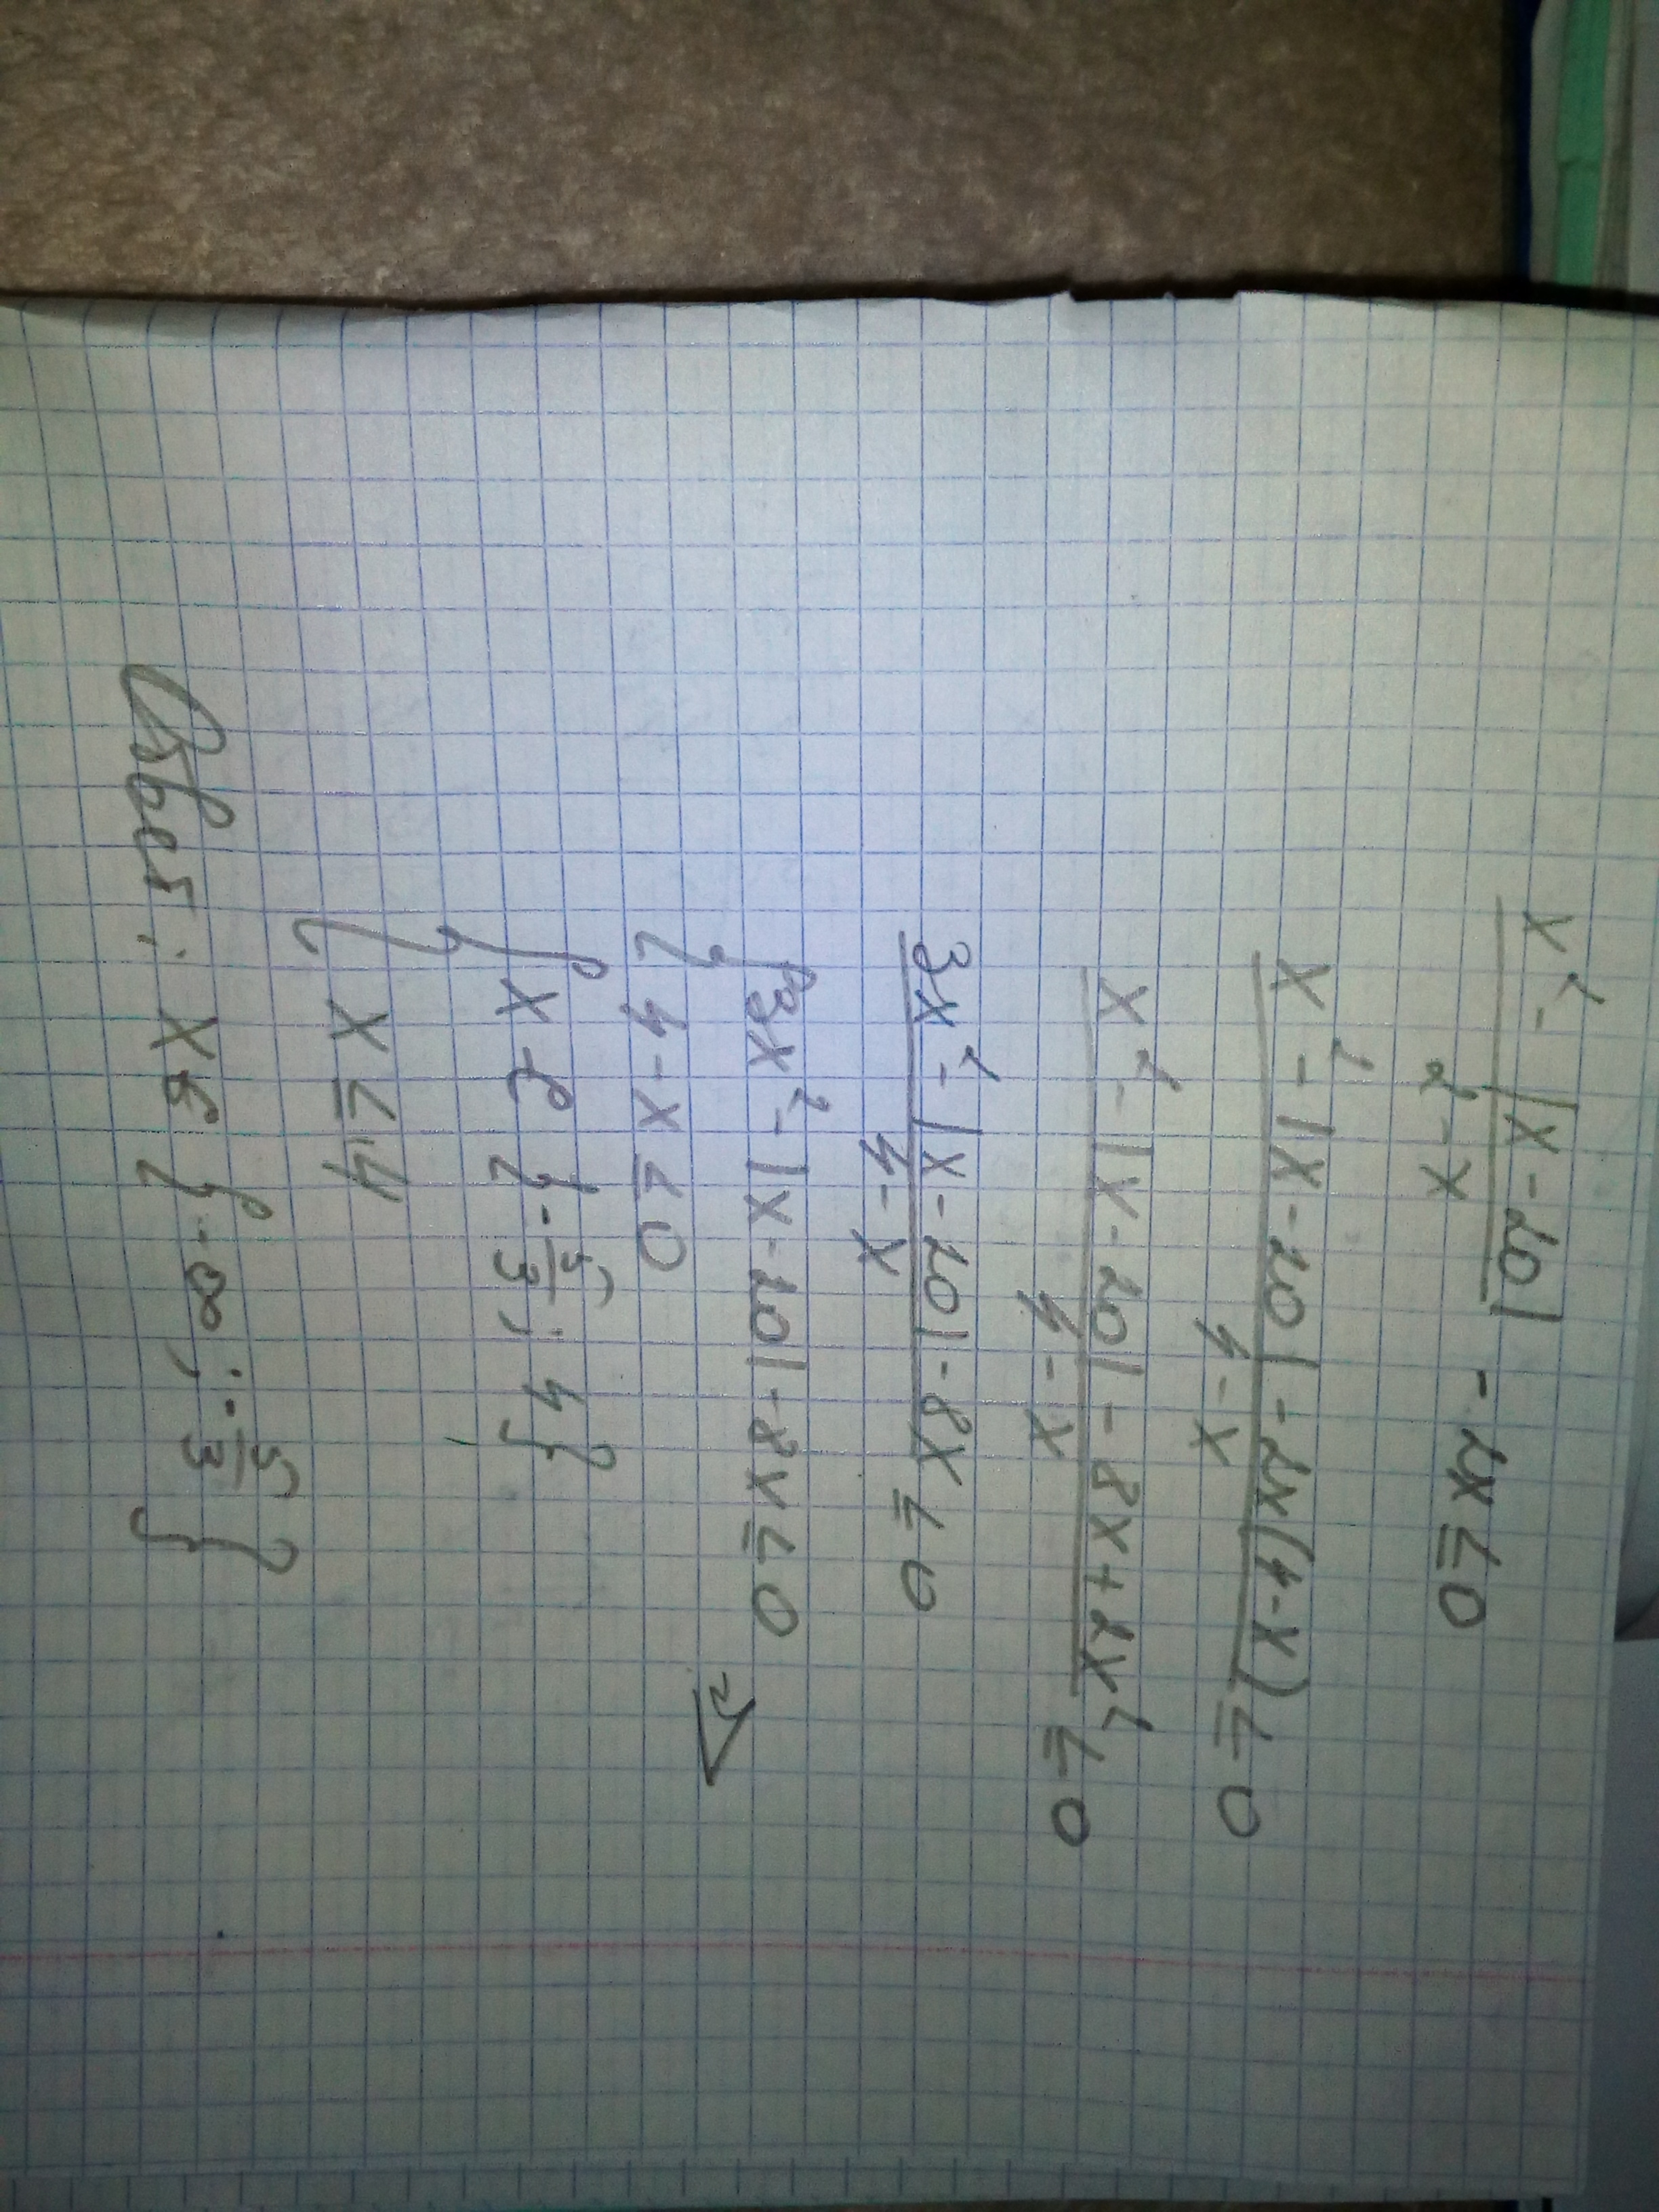 x² - |x - 20|
2 - x
- 2x ≥ 0
x² - |x - 20| - 2x(4-x)
4 - x
≥ 0
x² - |x - 20| - 8x + 2x²
4 - x
≥ 0
3x² - |x - 20| - 8x
4 - x
≥ 0
{ 3x² - |x - 20| - 8x ≥ 0
4 - x ≥ 0
{ x ∈ { -5/3 ; 4 }
x ≥ 4
Ответ: x ∈ { -∞ ; -5/3 }